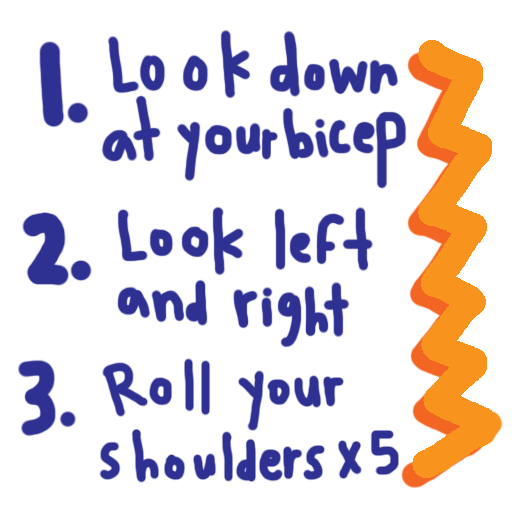 1. Look down
at your bicep
2. Look left
and right
3. Roll your
shoulders x5